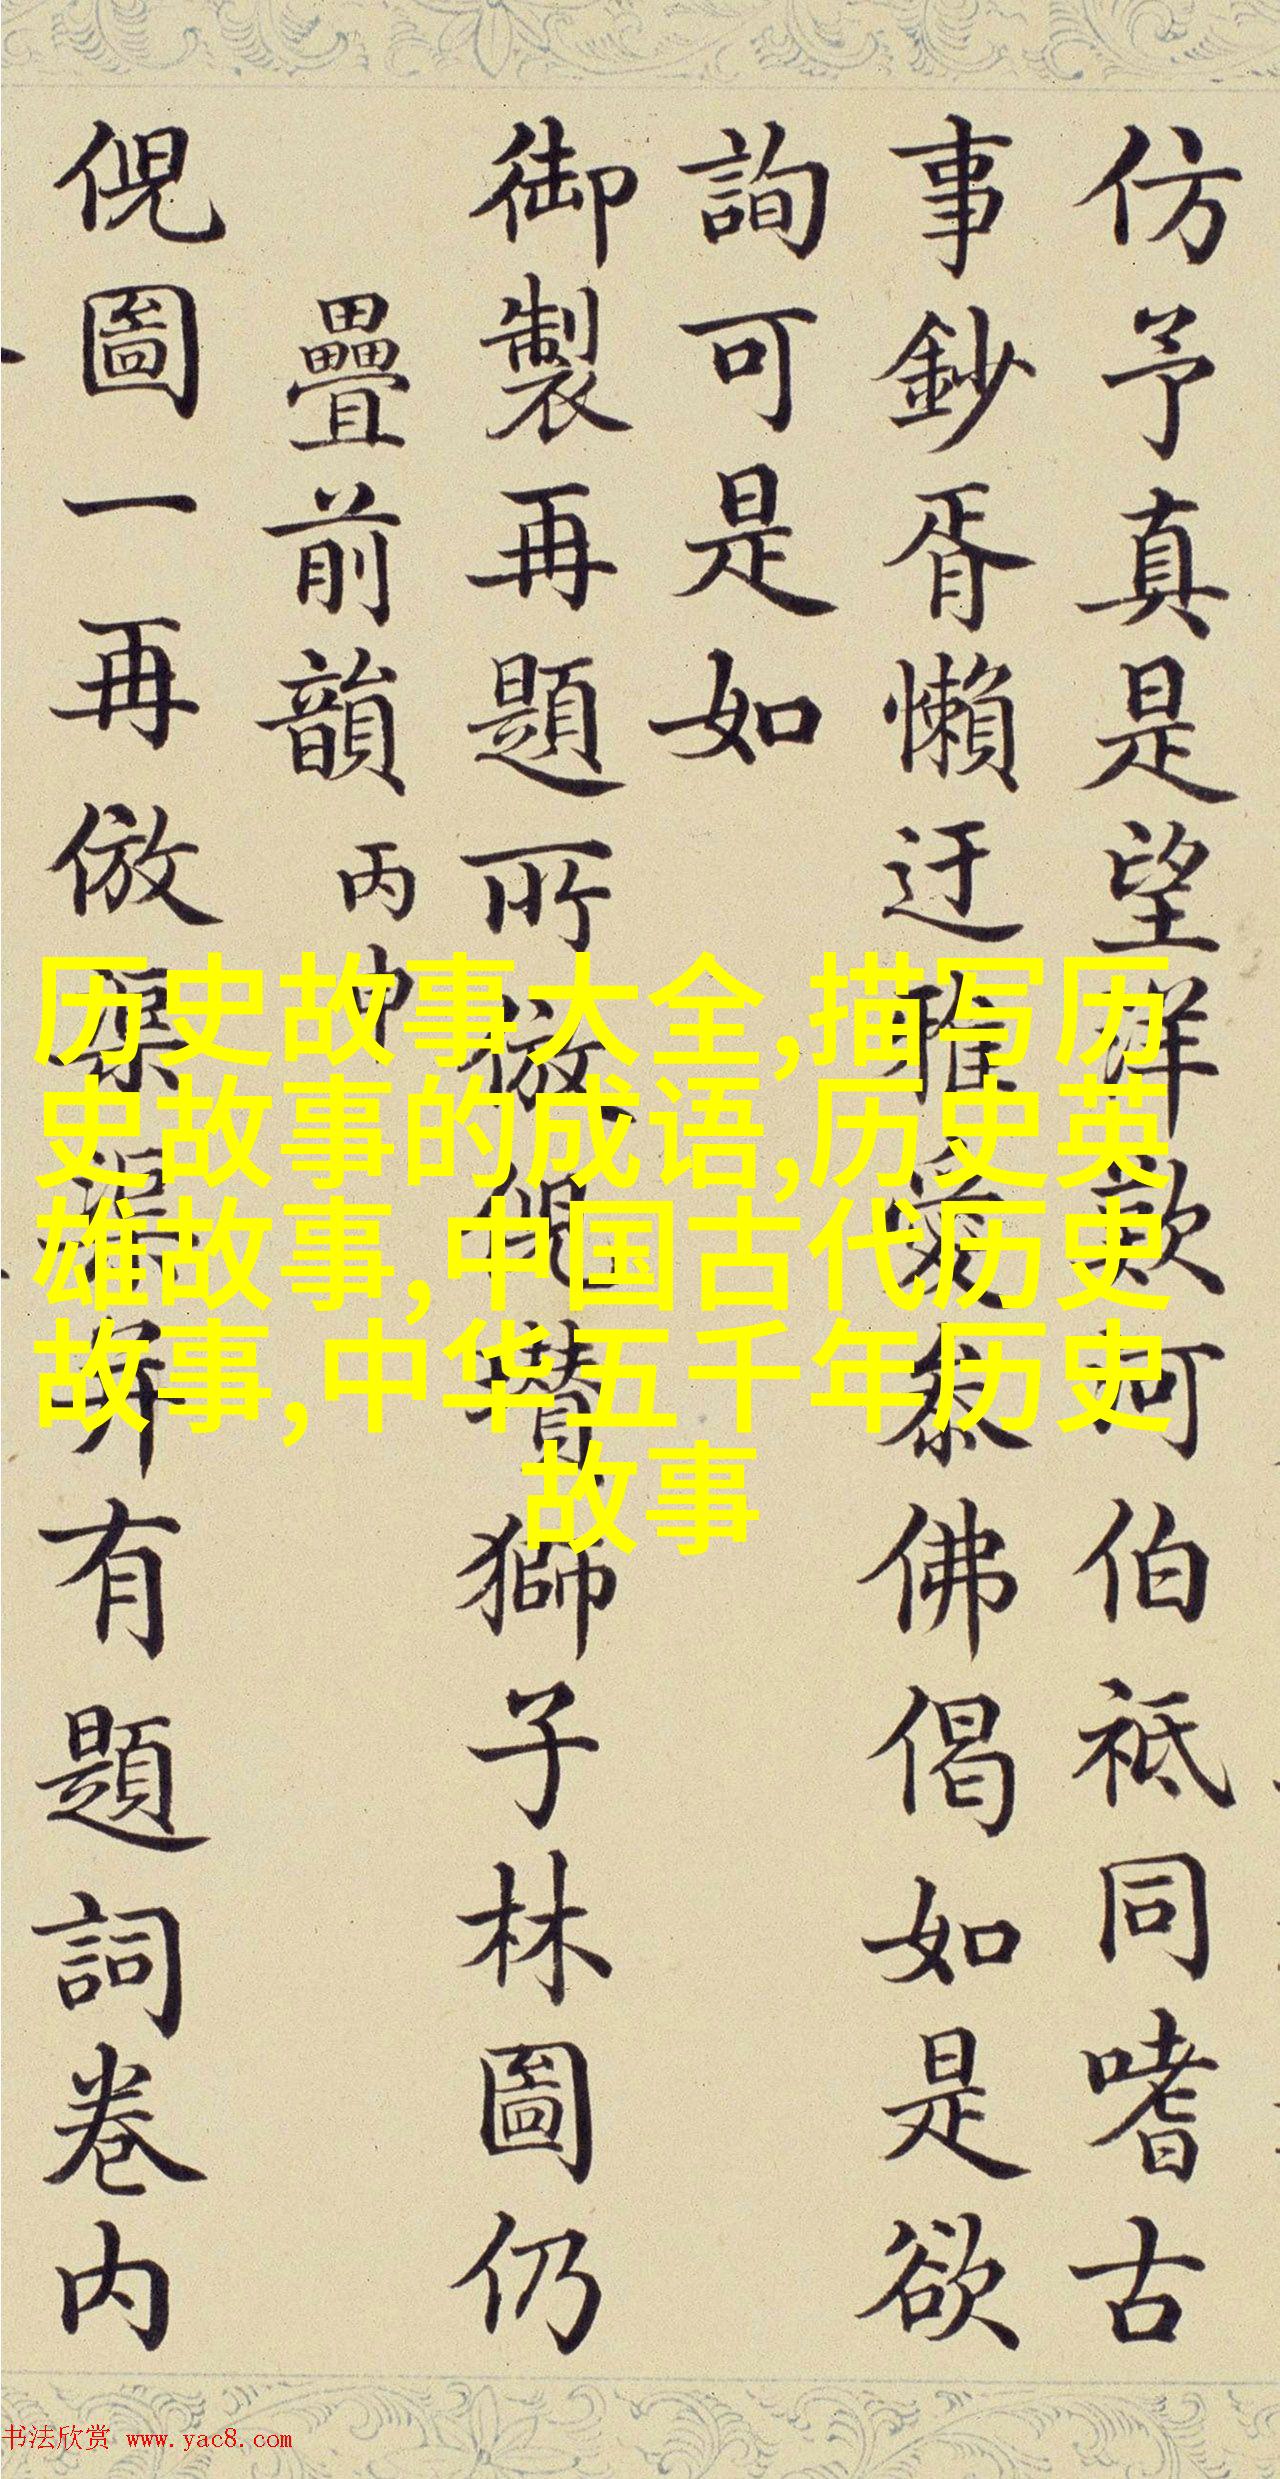 仿予真是望洋歎河伯祗同嗜古
事鈔胥懶迂雅愛參佛偈如是欲
詢可是如
御製再題所倣倪瓚獅子林圖仍
疊前韻丙申
倪圖一再倣有題詞卷内
历史故事大全,描写历
史故事的成语,历史英
雄故事,中国古代历史
故事,中华五千年历史
故事
书法欣赏 www.yac8.com